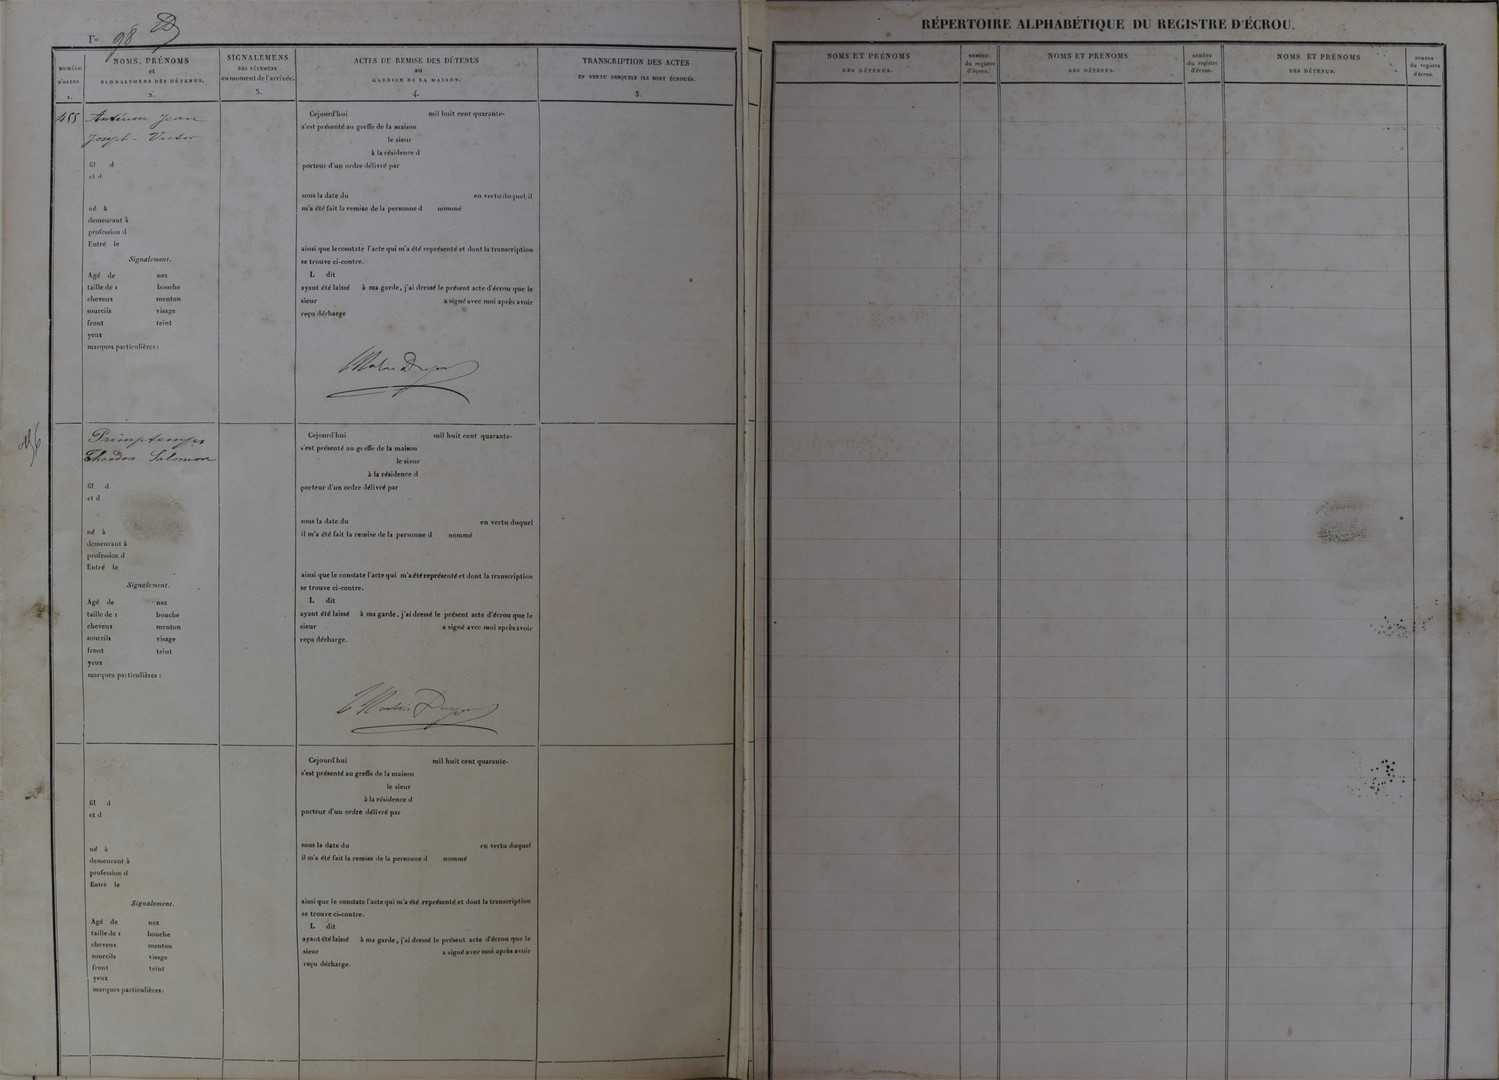 Fo 98
NUMÉRO
D'ORDRE
1.
NOMS, PRÉNOMS
et
SIGNALEMENS DES DÉTENUS.
2.
SIGNALEMENS
DES VÊTEMENS
au moment de l'arrivée.
3.
ACTES DE REMISE DES DÉTENUS
au
GARDIEN DE LA MAISON.
4.
TRANSCRIPTION DES ACTES
EN VERTU DESQUELS ILS SONT ÉCROUÉS.
5.
455
Jean
Joseph-Victor
fil d
et d
né à
demeurant à
profession d
Entré le
Signalement.
Agé de nez
taille de 1 bouche
cheveux menton
sourcils visage
front teint
yeux
marques particulières :
Cejourd'hui mil huit cent quarante-
s'est présenté au greffe de la maison
le sieur
à la résidence d
porteur d'un ordre délivré par
sous la date du en vertu duquel il
m'a été fait la remise de la personne d nommé
ainsi que le constate l'acte qui m'a été représenté et dont la transcription
se trouve ci-contre.
L dit
ayant été laissé à ma garde, j'ai dressé le présent acte d'écrou que le
sieur a signé avec moi après avoir
reçu décharge
456
Primptemps
Théodore Salomon
fil d
et d
né à
demeurant à
profession d
Entré le
Signalement.
Agé de nez
taille de 1 bouche
cheveux menton
sourcils visage
front teint
yeux
marques particulières :
Cejourd'hui mil huit cent quarante-
s'est présenté au greffe de la maison
le sieur
à la résidence d
porteur d'un ordre délivré par
sous la date du en vertu duquel
il m'a été fait la remise de la personne d nommé
ainsi que le constate l'acte qui m'a été représenté et dont la transcription
se trouve ci-contre.
L dit
ayant été laissé à ma garde, j'ai dressé le présent acte d'écrou que le
sieur a signé avec moi après avoir
reçu décharge.
fil d
et d
né à
demeurant à
profession d
Entré le
Signalement.
Agé de nez
taille de 1 bouche
cheveux menton
sourcils visage
front teint
yeux
marques particulières :
Cejourd'hui mil huit cent quarante-
s'est présenté au greffe de la maison
le sieur
à la résidence d
porteur d'un ordre délivré par
sous la date du en vertu duquel
il m'a été fait la remise de la personne d nommé
ainsi que le constate l'acte qui m'a été représenté et dont la transcription
se trouve ci-contre.
L dit
ayant été laissé à ma garde, j'ai dressé le présent acte d'écrou que le
sieur a signé avec moi après avoir
reçu décharge.
RÉPERTOIRE ALPHABÉTIQUE DU REGISTRE D'ÉCROU.
NOMS ET PRÉNOMS
DES DÉTENUS.
NUMÉRO
du registre
d'écrou.
NOMS ET PRÉNOMS
DES DÉTENUS.
NUMÉRO
du registre
d'écrou.
NOMS ET PRÉNOMS
DES DÉTENUS.
NUMÉRO
du registre
d'écrou.